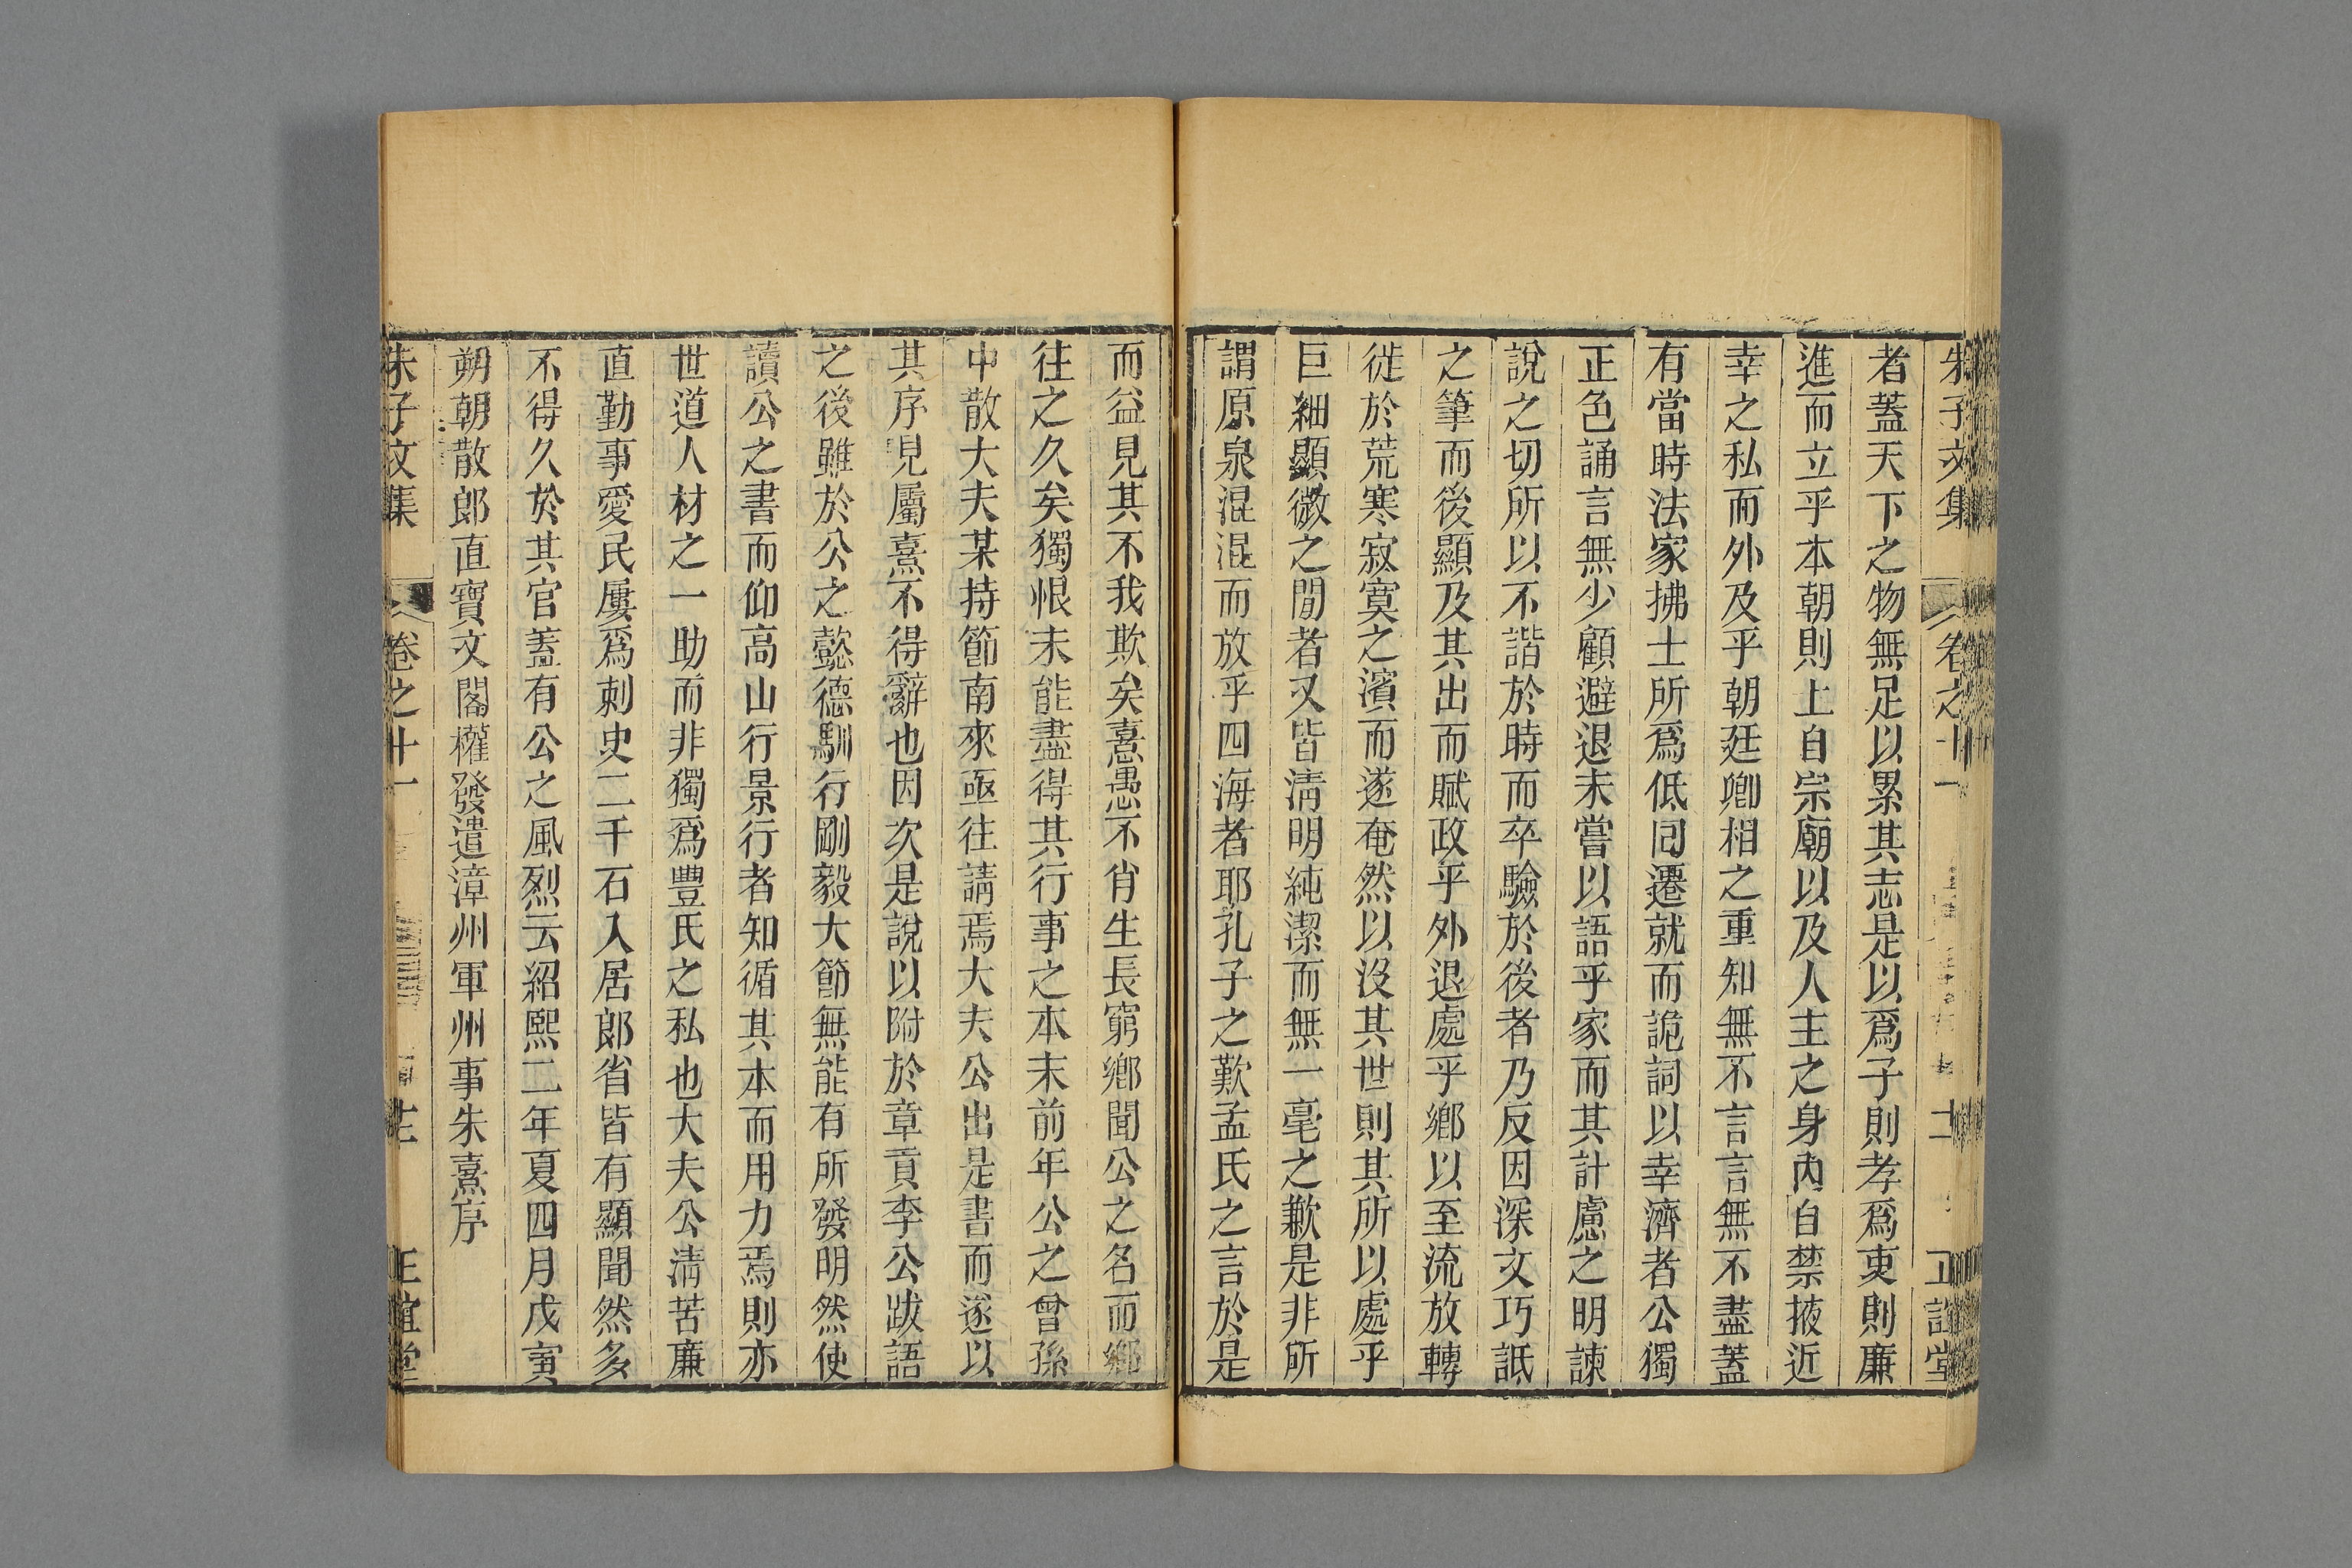 朱子文集 卷之十一 正誼堂
者蓋天下之物無足以累其志是以爲子則孝爲吏則廉
進而立乎本朝則上自宗廟以及人主之身內自禁掖近
幸之私而外及乎朝廷卿相之重知無不言言無不盡蓋
有當時法家拂士所爲低囘遷就而詭詞以幸濟者公獨
正色誦言無少顧避退未嘗以語乎家而其計慮之明諫
說之切所以不諧於時而卒驗於後者乃反因深文巧詆
之筆而後顯及其出而賦政乎外退處乎鄉以至流放轉
徙於荒寒寂寞之濱而遂奄然以沒其世則其所以處乎
巨細顯微之閒者又皆淸明純潔而無一毫之歉是非所
謂原泉混混而放乎四海者耶孔子之歎孟氏之言於是
而益見其不我欺矣憙愚不肖生長窮鄉聞公之名而鄉
往之久矣獨恨未能盡得其行事之本末前年公之曾孫
中散大夫某持節南來亟往請焉大夫公出是書而遂以
其序見屬熹不得辭也因次是說以附於章貢李公跋語
之後雖於公之懿德馴行剛毅大節無能有所發明然使
讀公之書而仰高山行景行者知循其本而用力焉則亦
世道人材之一助而非獨爲豐氏之私也大夫公淸苦廉
直勤事愛民屢爲刺史二千石入居郎省皆有顯聞然多
不得久於其官蓋有公之風烈云紹熙二年夏四月戊寅
朔朝散郎直寶文閣權發遣漳州軍州事朱熹序
朱子文集 卷之十一 正誼堂